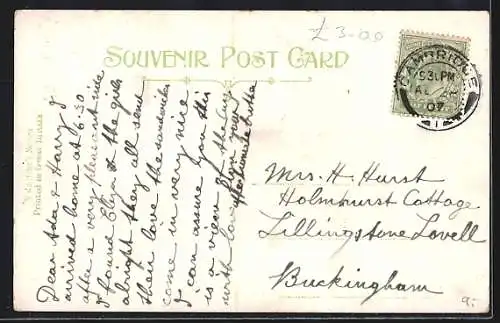 £3-00
SOUVENIR POST CARD
CAMBRIDGE
5 31 PM
07
Dear Ada & Harry I
arrived home at 6.30
after a very pleasant ride
& found Eliza & the girls
alright they all send
their love the sandwiches
come in very nice
I can assure you this
is a view of the
with love from your
Mrs. H. Hurst
Holmhurst Cottage
Lillingstone Lovell
Buckingham
Printed in